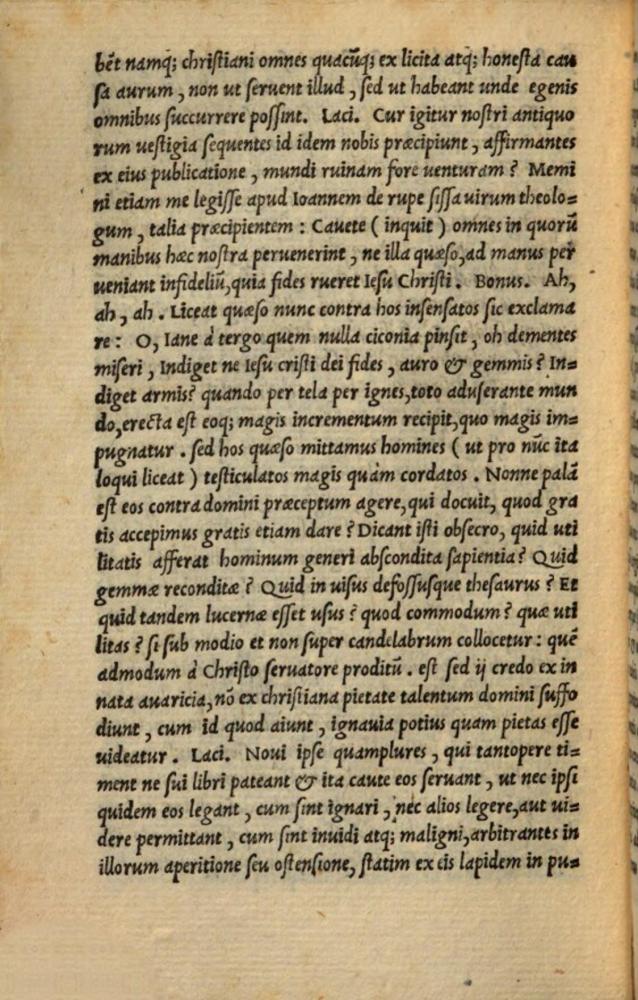 bēt namq; christiani omnes quacūq; ex licita atq; honesta cau
sa aurum, non ut seruent illud, sed ut habeant unde egenis
omnibus succurrere possint. Laci. Cur igitur nostri antiquo
rum uestigia sequentes id idem nobis præcipiunt, affirmantes
ex eius publicatione, mundi ruinam fore uenturam? Memi
ni etiam me legisse apud Ioannem de rupe sissa uirum theolo=
gum, talia præcipientem: Cauete (inquit) omnes in quorū
manibus hæc nostra peruenerint, ne illa quæso, ad manus per
ueniant infideliū, quia fides rueret Iesu Christi. Bonus. Ah,
ah, ah. Liceat quæso nunc contra hos insensatos sic exclama
re: O, Iane à tergo quem nulla ciconia pinsit, oh dementes
miseri, Indiget ne Iesu cristi dei fides, auro & gemmis? In=
diget armis? quando per tela per ignes, toto aduserante mun
do, erecta est eoq; magis incrementum recipit, quo magis im=
pugnatur. sed hos quæso mittamus homines (ut pro nūc ita
loqui liceat) testiculatos magis quàm cordatos. Nonne palā
est eos contra domini præceptum agere, qui docuit, quod gra
tis accepimus gratis etiam dare? Dicant isti obsecro, quid uti
litatis afferat hominum generi abscondita sapientia? Quid
gemmæ reconditæ? Quid in uisus defossusque thesaurus? Et
quid tandem lucernæ esset usus? quod commodum? quæ uti
litas? si sub modio et non super candelabrum collocetur: quē
admodum à Christo seruatore proditū. est sed ij credo ex in
nata auaricia, nō ex christiana pietate talentum domini suffo
diunt, cum id quod aiunt, ignauia potius quam pietas esse
uideatur. Laci. Noui ipse quamplures, qui tantopere ti=
ment ne sui libri pateant & ita caute eos seruant, ut nec ipsi
quidem eos legant, cum sint ignari, nec alios legere, aut ui=
dere permittant, cum sint inuidi atq; maligni, arbitrantes in
illorum aperitione seu ostensione, statim ex eis lapidem in pu=